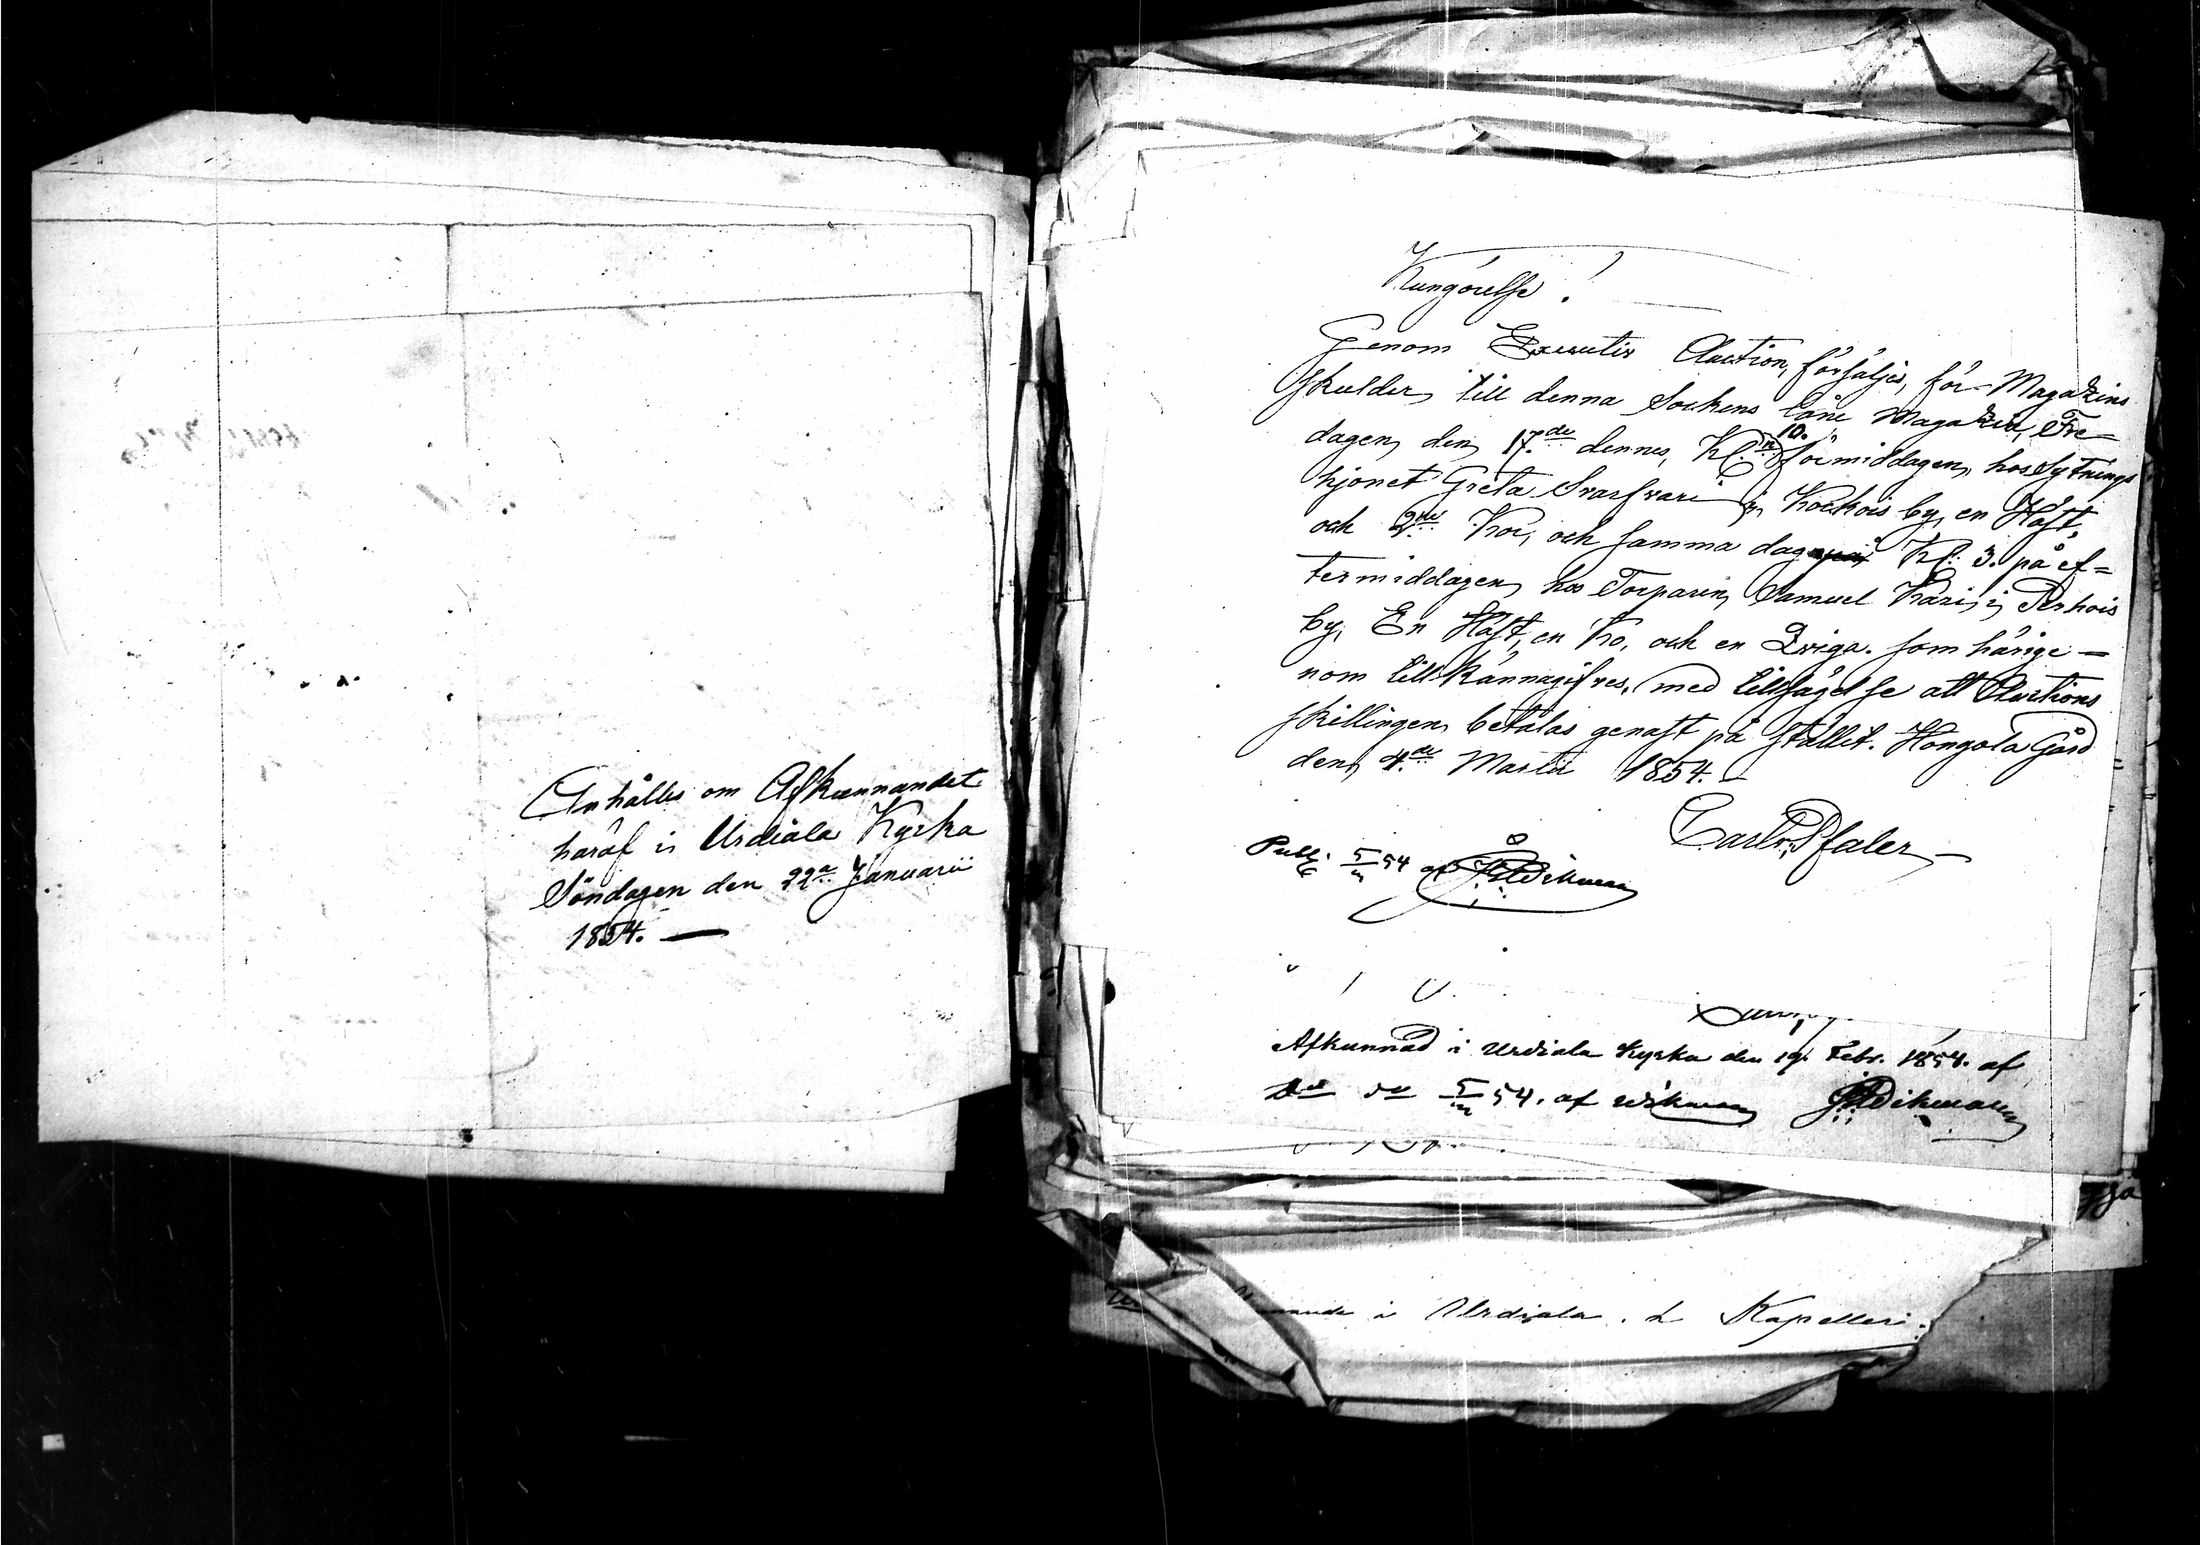 Anhålles om Afkunnandet
häraf i Urdiala Kyrka
Söndagen den 22a Januarii
1854. —
Kungörelse!
Genom Executiv Auction, försäljes, för Magazins
skulder till denna Sockens låne Magazin, Fre-
dagen den 17de dennes, Kl: 10. förmiddagen, hos Sytnings
hjonet Greta i Kockois by, en Häst,
och 2ne Kor, och samma dag Kl: 3. på ef=
termiddagen hos Torparen Samuel Kari i Perhois
by, En Häst, en Ko, och en Qviga. som härige-
nom till kännagifves, med tillsägelse att Auctions
skillingen betalas genast på stället. Hongola Gård
den 4de Martii 1854. —
Carl v. Pfaler
Publ: 5/3 54 af Wikman
Afkunnad i Urdiala Kyrka den 19 Febr. 1854. af
Do do 5/3 54. af Wikman Wikman
i Urdiala. Kapelleri